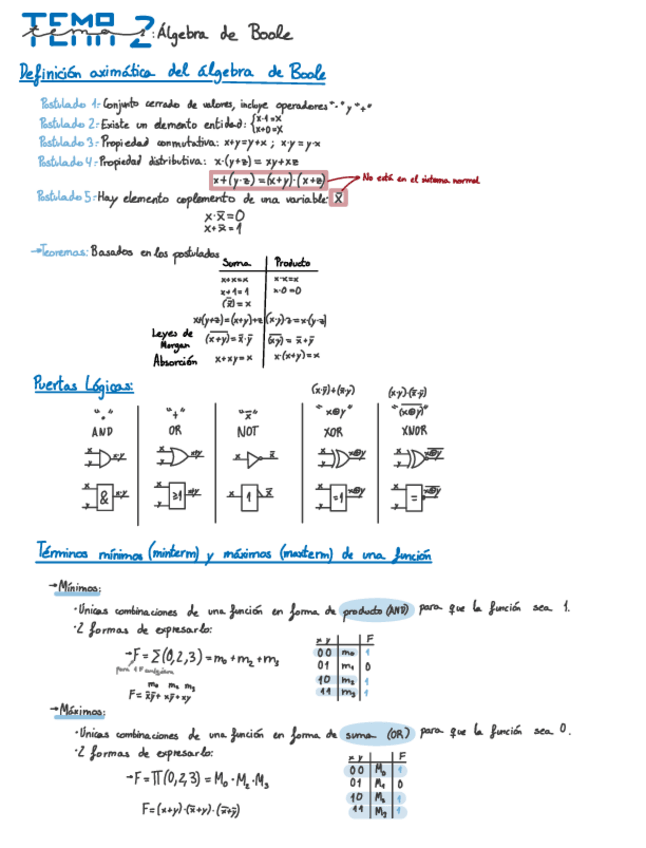 TEMA 2: Álgebra de Boole
Tema
Definición aximática del álgebra de Boole
Postulado 1: Conjunto cerrado de valores, incluye operadores "·" y "+"
Postulado 2: Existe un elemento entidad: {x·1=x
x+0=x
Postulado 3: Propiedad conmutativa: x+y=y+x ; x·y=y·x
Postulado 4: Propiedad distributiva: x·(y+z) = xy+xz
x+(y·z)=(x+y)·(x+z) → No está en el sistema normal
Postulado 5: Hay elemento coplemento de una variable: x̅
x·x̅=0
x+x̅=1
→Teoremas: Basados en los postulados
Suma Producto
x+x=x x·x=x
x+1=1 x·0=0
(x̿)=x
x+(y+z)=(x+y)+z (x·y)·z=x·(y·z)
Leyes de Morgan (x+y)̅=x̅·y̅ (xy)̅=x̅+y̅
Absorción x+xy=x x·(x+y)=x
Puertas Lógicas:
(x·y̅)+(x̅·y) (x·y)·(x̅·y̅)
"·" "+" "x̅" "x⊕y" "(x⊕y)̅"
AND OR NOT XOR XNOR
x y x·y x y x+y x x̅ x y x⊕y x y (x⊕y)̅
x y & x·y x y ≥1 x+y x 1 x̅ x y =1 x⊕y x y = (x⊕y)̅
Términos mínimos (minterm) y máximos (maxterm) de una función
→Mínimos:
·Unicas combinaciones de una función en forma de producto (AND) para que la función sea 1.
·2 formas de expresarlo:
→F=Σ(0,2,3)=m₀+m₂+m₃
m₀ m₂ m₃
F=x̅y̅+xy̅+xy
x y F
00 m₀ 1
01 m₁ 0
10 m₂ 1
11 m₃ 1
→Máximos:
·Unicas combinaciones de una función en forma de suma (OR) para que la función sea 0.
·2 formas de expresarlo:
→F=Π(0,2,3)=M₀·M₂·M₃
F=(x+y)·(x̅+y)·(x̅+y̅)
x y F
00 M₀ 1
01 M₁ 0
10 M₂ 1
11 M₃ 1